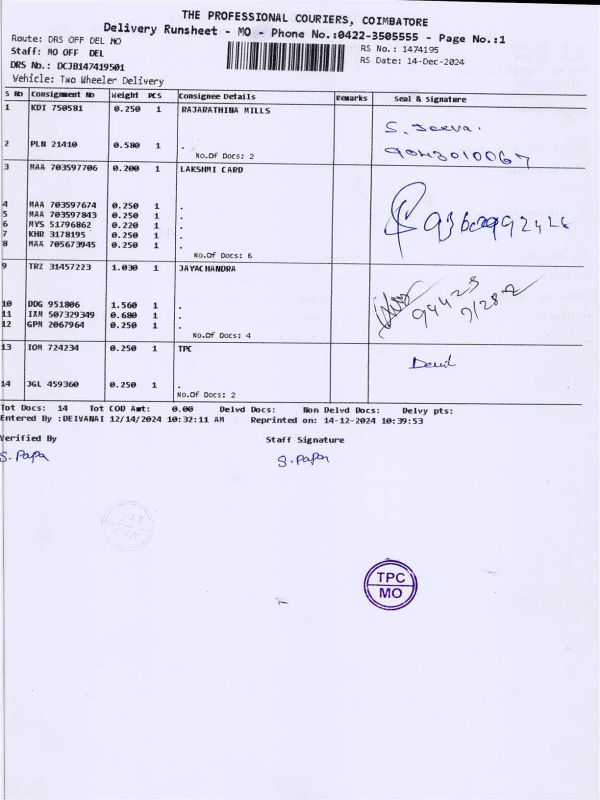 THE PROFESSIONAL COURIERS, COIMBATORE
Delivery Runsheet - MO - Phone No.:0422-3505555 - Page No.:1
Route: DRS OFF DEL MO
RS No.: 1474195
Staff: MO OFF DEL
RS Date: 14-Dec-2024
DRS No.: DCJB147419501
Vehicle: Two Wheeler Delivery
S No Consignment No Weight PCS Consignee Details Remarks Seal & Signature
1 KDI 750581 0.250 1 RAJARATHINA MILLS
2 PLN 21410 0.580 1 .
No.Of Docs: 2
3 MAA 703597706 0.200 1 LAKSHMI CARD
4 MAA 703597674 0.250 1 .
5 MAA 703597843 0.250 1 .
6 MYS 51796862 0.220 1 .
7 KHR 3178195 0.250 1 .
8 MAA 705673945 0.250 1 .
No.Of Docs: 6
9 TRZ 31457223 1.030 1 JAYACHANDRA
10 DDG 951806 1.560 1 .
11 IXM 507329349 0.680 1 .
12 GPM 2067964 0.250 1 .
No.Of Docs: 4
13 IOM 724234 0.250 1 TPC
14 JGL 459360 0.250 1 .
No.Of Docs: 2
Tot Docs: 14 Tot COD Amt: 0.00 Delvd Docs: Non Delvd Docs: Delvy pts:
Entered By :DEIVANAI 12/14/2024 10:32:11 AM Reprinted on: 14-12-2024 10:39:53
Verified By Staff Signature
S. Papa S. Papa
TPC
MO